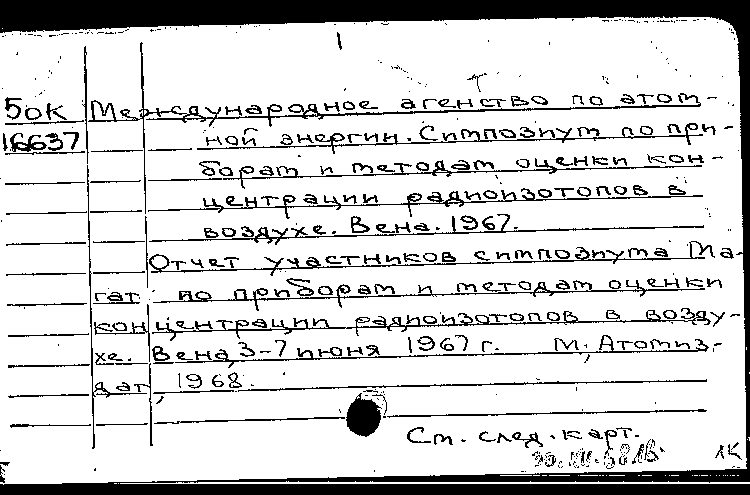 5ок Международное агенство по атом-
16637 ной энергии. Симпозиум по при-
борам и методам оценки кон-
центрации радиоизотопов в
воздухе. Вена. 1967.
Отчет участников симпозиума Ма-
гат по приборам и методам оценки
концентрации радиоизотопов в возду-
хе. Вена, 3-7 июня 1967 г. М., Атомиз-
дат, 1968.
См. след. карт.
1К